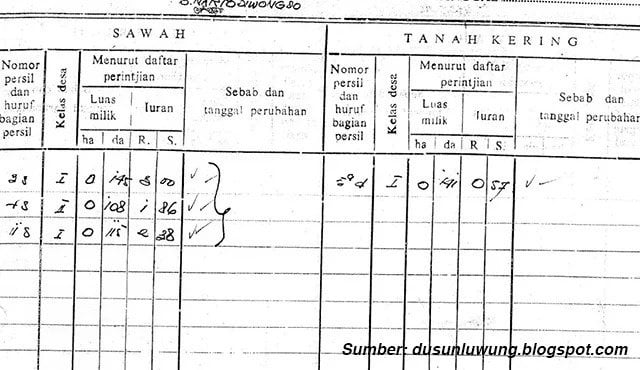 S A W A H
T A N A H K E R I N G
Nomor persil dan huruf bagian persil
Kelas desa
Menurut daftar perintjian
Luas milik
Iuran
ha da R. S.
Sebab dan tanggal perubahan
Nomor persil dan huruf bagian persil
Kelas desa
Menurut daftar perintjian
Luas milik
Iuran
ha da R S
Sebab dan tanggal perubahan
I 0
I 0 108 i 86
I 0 115 2 38
I 0 141 0 57
Sumber: dusunluwung.blogspot.com